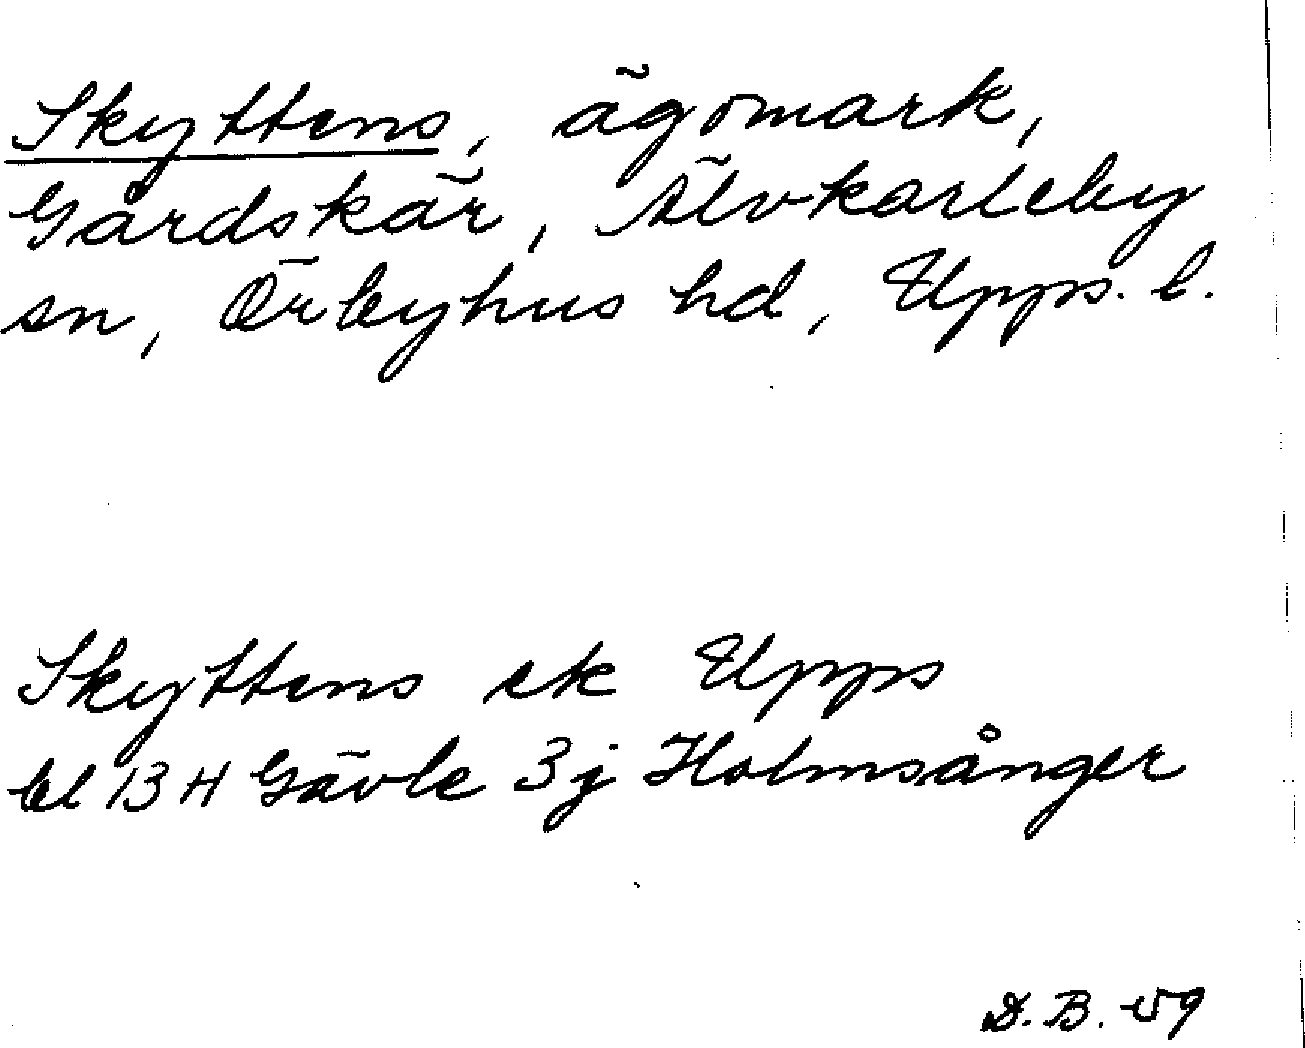 Skyttens, ägomark,
Gårdskär, Älvkarleby
sn, Örbyhus hd, Upps. l.
Skyttens ek Upps
bl 13 H Gävle 3j Holmsånger
D. B. -59